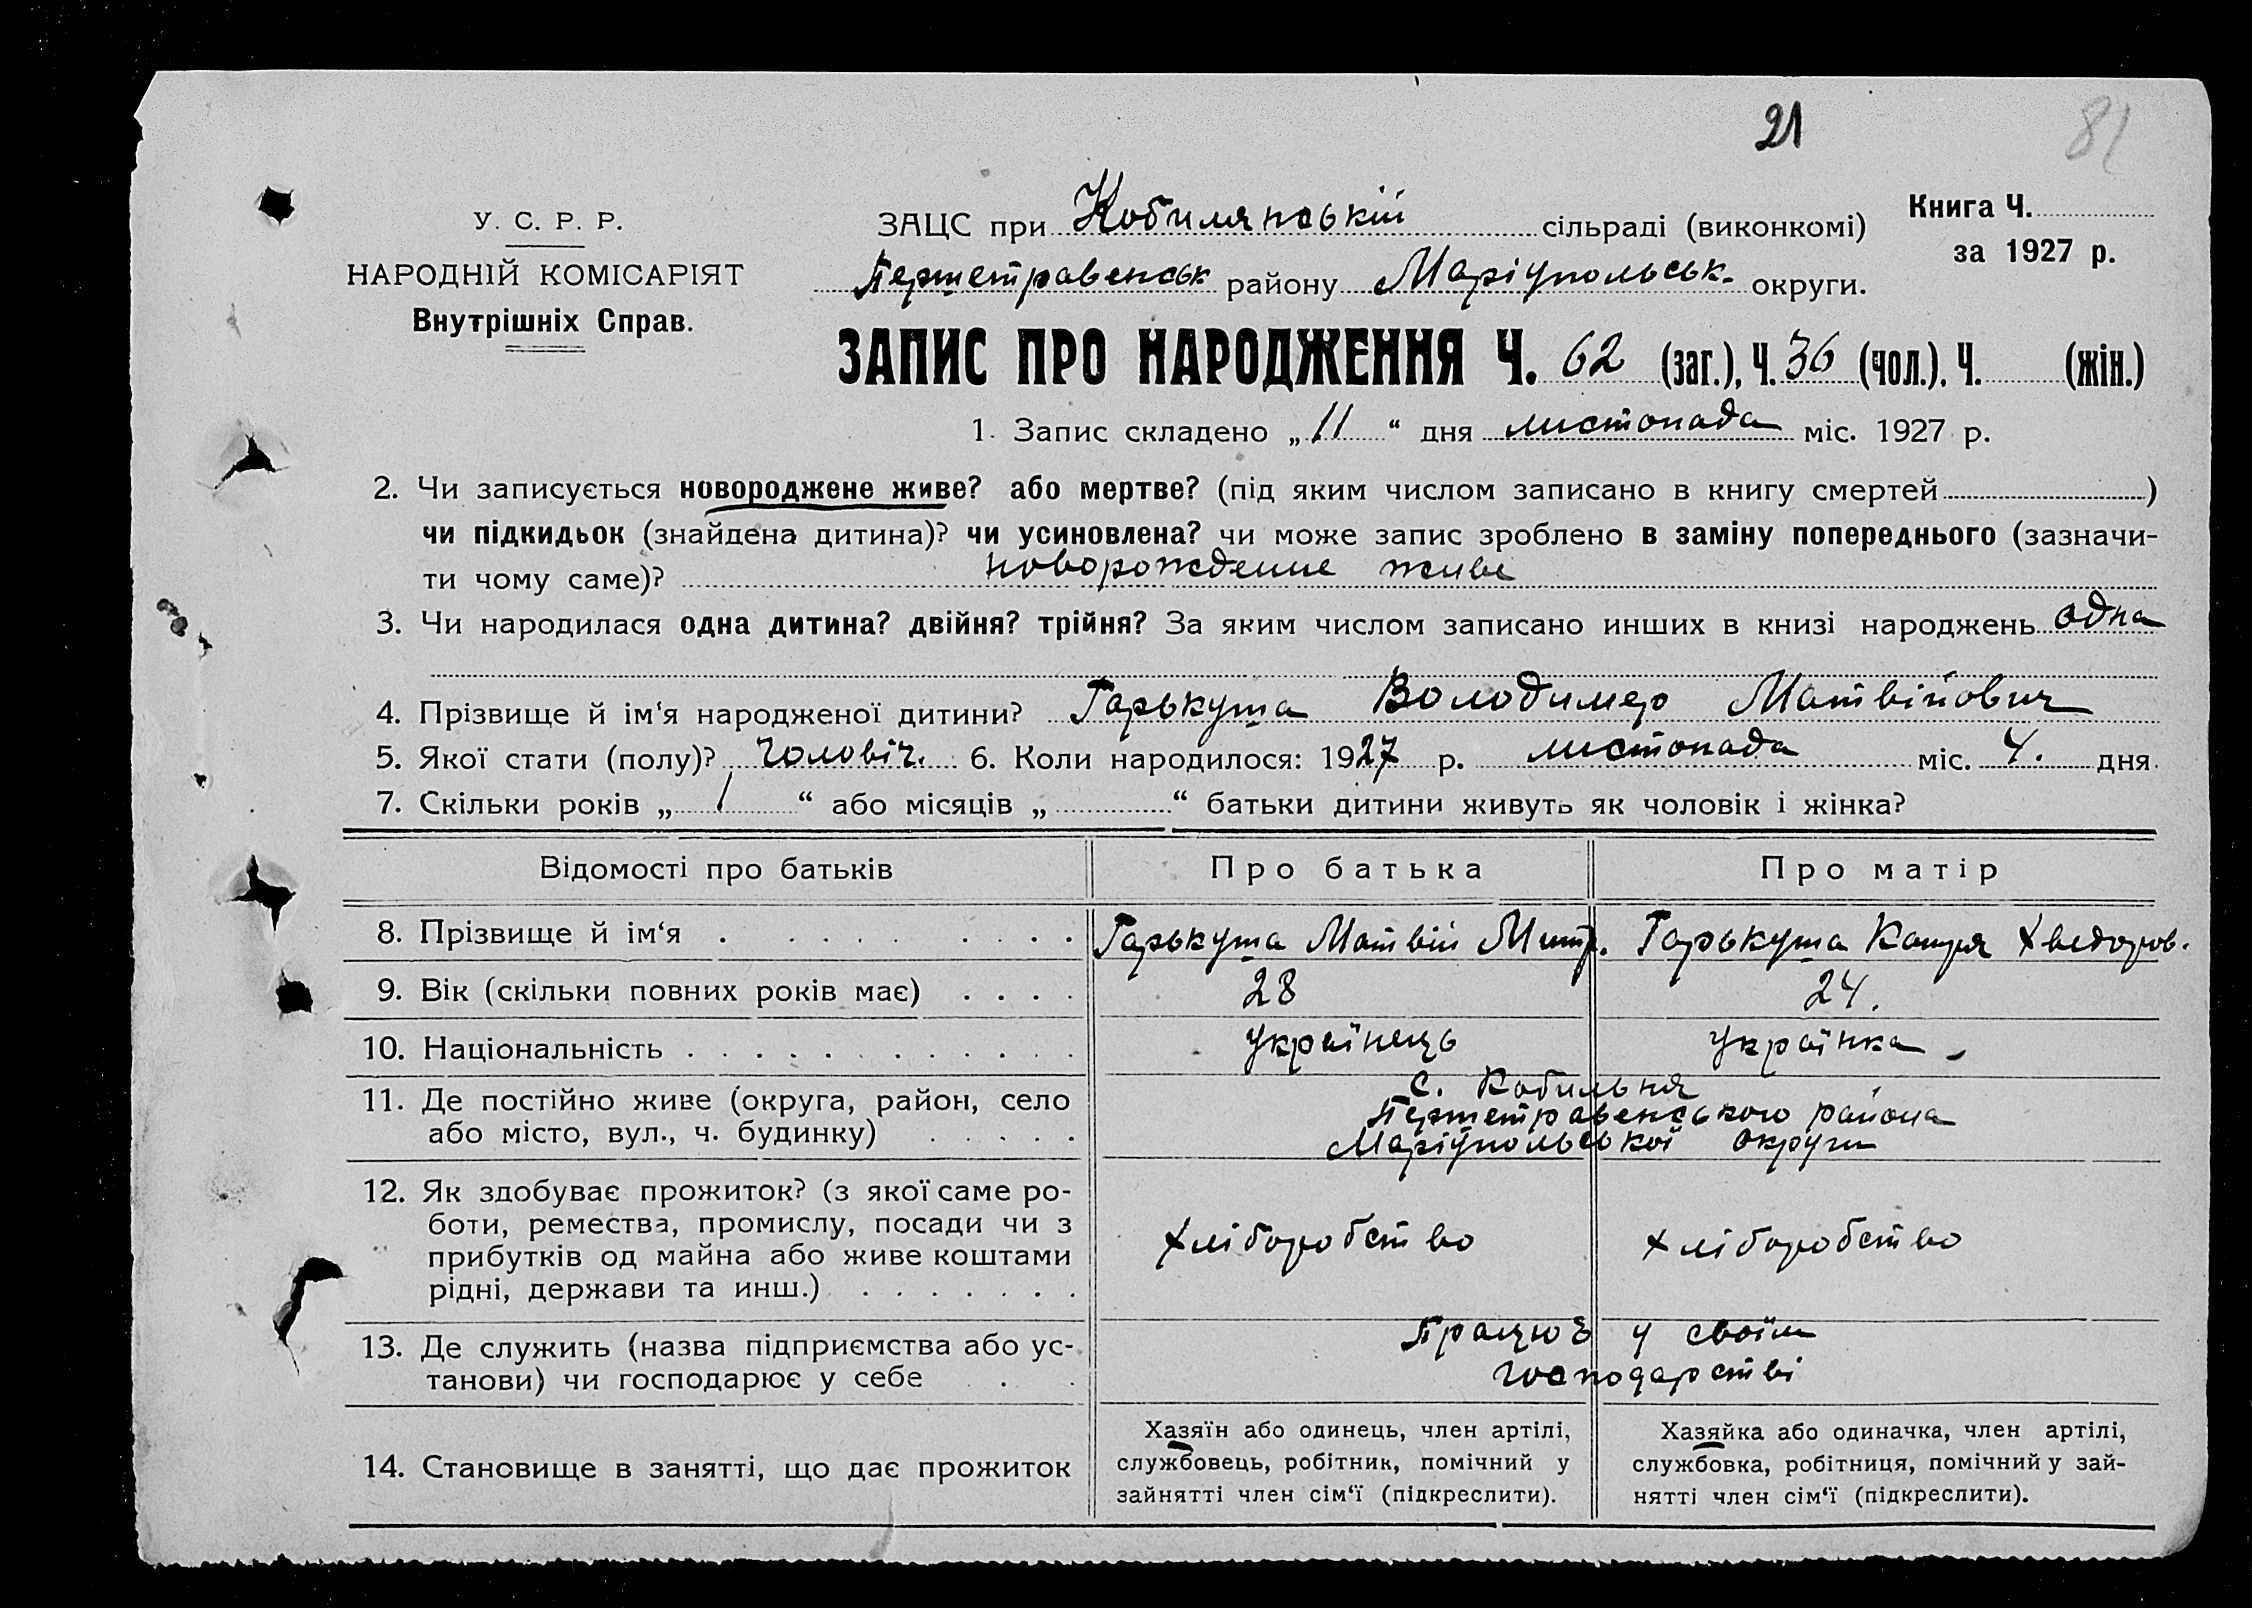 21 81
У. С. Р. Р.
НАРОДНІЙ КОМІСАРІЯТ
Внутрішніх Справ.
ЗАЦС при Кобилянській сільраді (виконкомі)
Книга Ч.
за 1927 р.
Першетравенськ району Маріупольськ. округи.
ЗАПИС ПРО НАРОДЖЕННЯ Ч. 62 (заг.), Ч. 36 (чол.), Ч. (жін.)
1. Запис складено „ 11 “ дня листопада міс. 1927 р.
2. Чи записується новороджене живе? або мертве? (під яким числом записано в книгу смертей )
чи підкидьок (знайдена дитина)? чи усиновлена? чи може запис зроблено в заміну попереднього (зазначи-
ти чому саме)? новорождение живе
3. Чи народилася одна дитина? двійня? трійня? За яким числом записано инших в книзі народжень одна
4. Прізвище й ім‘я народженої дитини? Гарькуша Володимер Матвійович
5. Якої стати (полу)? чоловіч. 6. Коли народилося: 1927 р. листопада міс. 4. дня
7. Скільки років „ 1 “ або місяців „ “ батьки дитини живуть як чоловік і жінка?
Відомості про батьків Про батька Про матір
8. Прізвище й ім‘я Гарькуша Матвій Митр. Гарькуша Катря Хведоров.
9. Вік (скільки повних років має) 28 24.
10. Національність українець українка
11. Де постійно живе (округа, район, село
або місто, вул., ч. будинку)
с. Кобильня
Першетравенського района
Маріупольської округи
12. Як здобуває прожиток? (з якої саме ро-
боти, ремества, промислу, посади чи з
прибутків од майна або живе коштами
рідні, держави та инш.)
хліборобство хліборобство
13. Де служить (назва підприємства або ус-
танови) чи господарює у себе
Працює у своїм
господарстві
14. Становище в занятті, що дає прожиток
Хазяїн або одинець, член артілі,
службовець, робітник, помічний у
зайнятті член сім‘ї (підкреслити).
Хазяйка або одиначка, член артілі,
службовка, робітниця, помічний у зай-
нятті член сім‘ї (підкреслити).